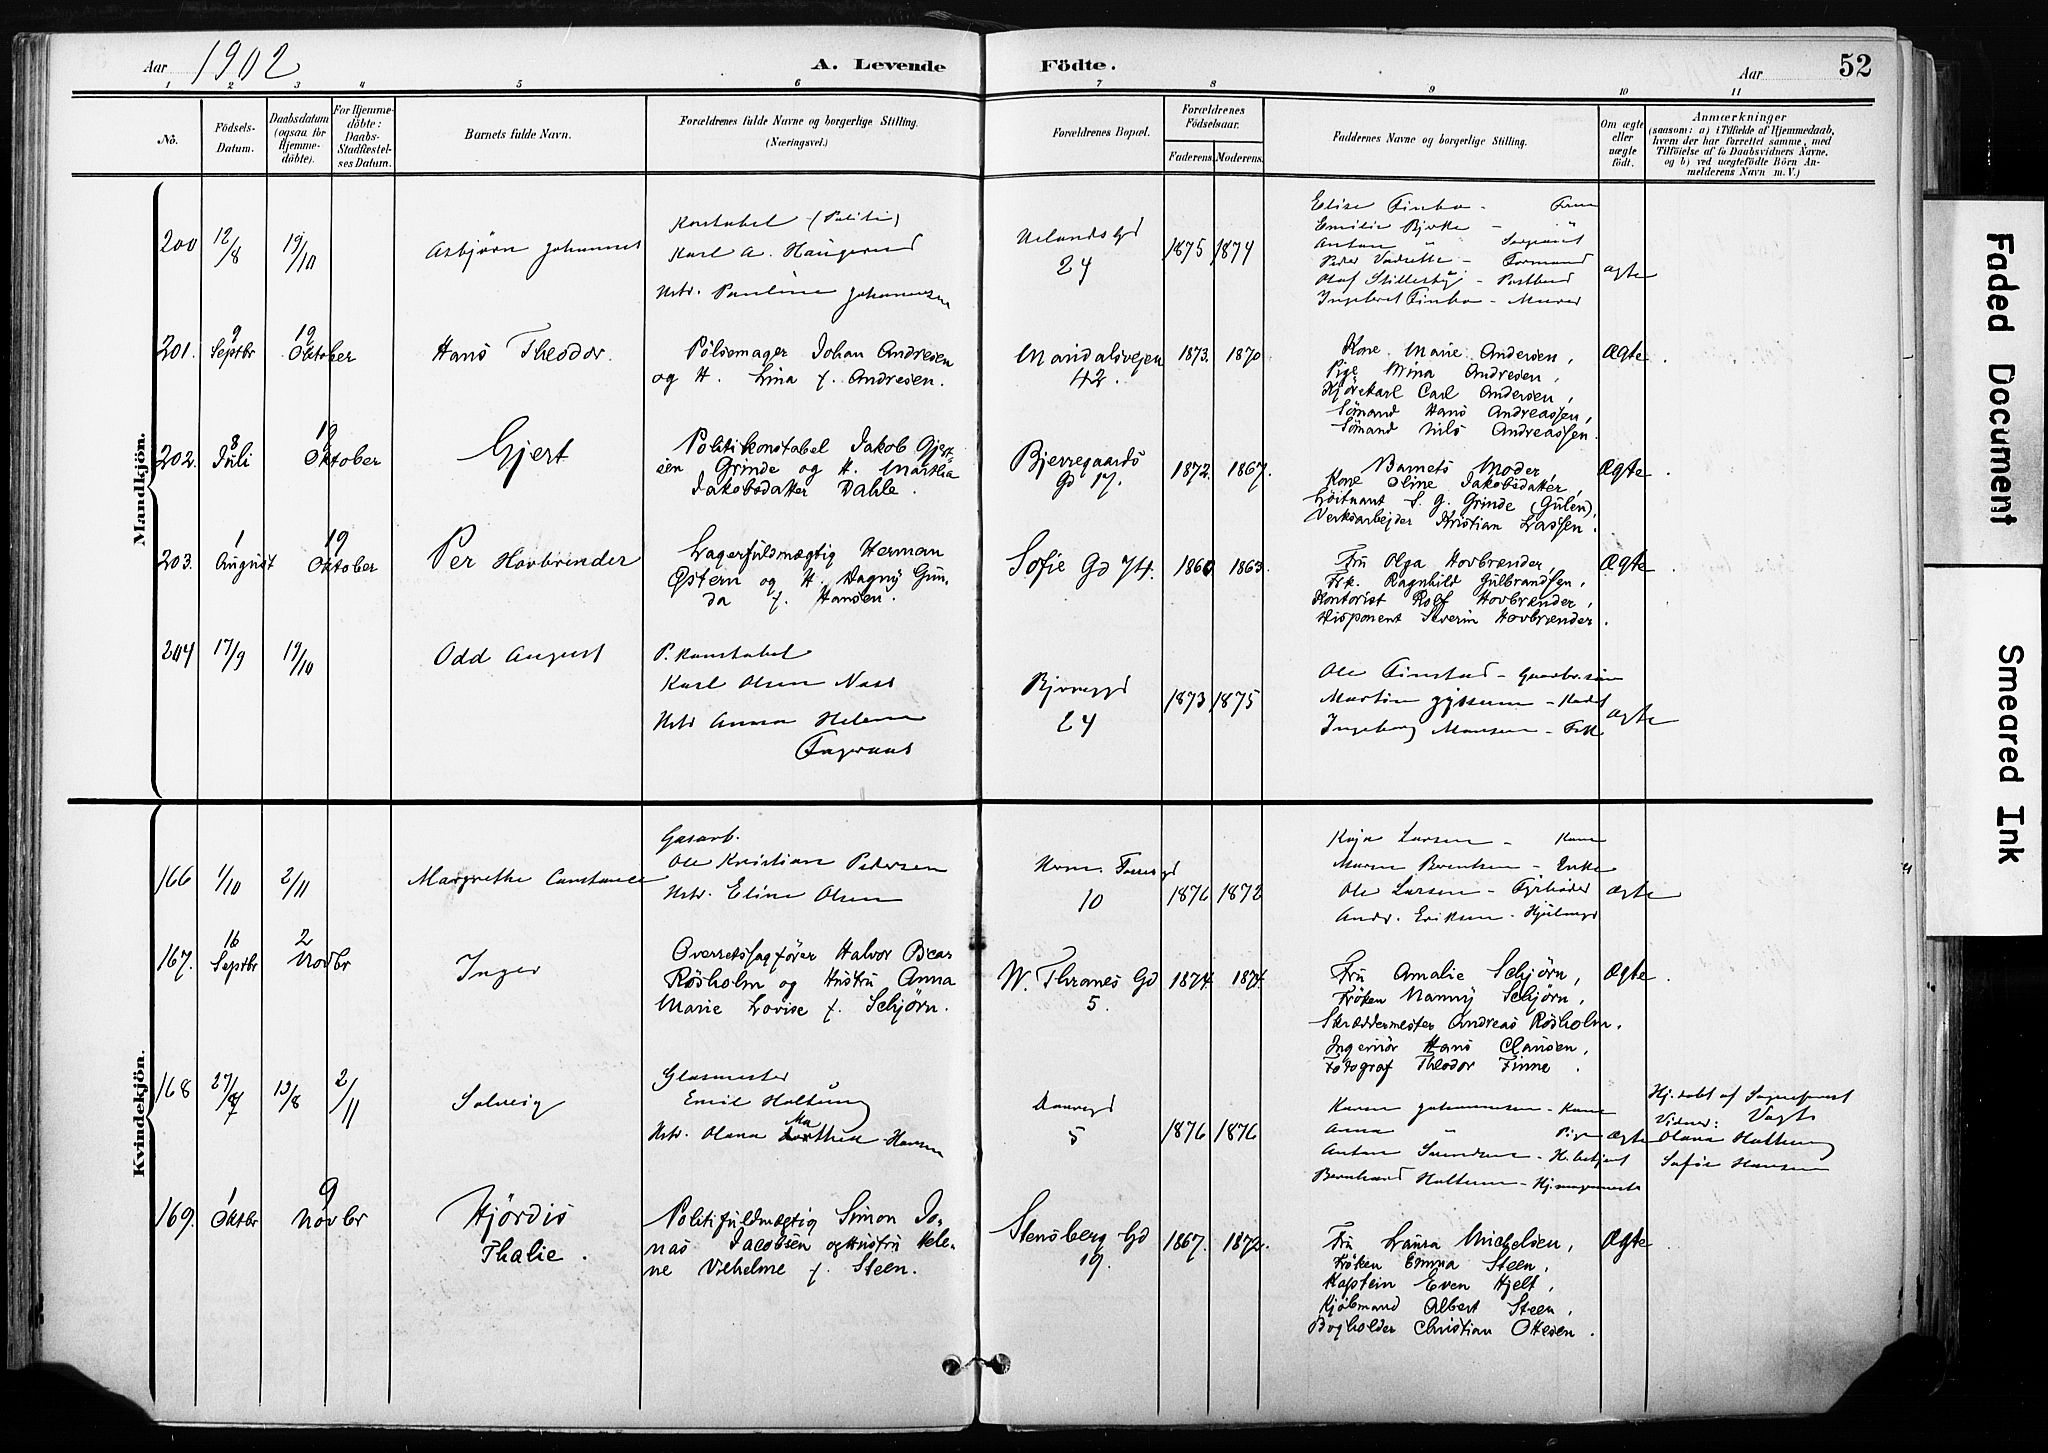 Aar 1902 A. Levende Födte. Aar 52
1 2 3 4 5 6 7 8 9 10 11
No. Födsels-Datum. Daabsdatum (ogsaa for Hjemme-döbte). For Hjemme-döbte: Daabs-Stadfæstel-ses Datum. Barnets fulde Navn. Forældrenes fulde Navne og borgerlige Stilling. (Næringsvei.) Forældrenes Bopæl. Forældrenes Födselsaar. Faderens. Moderens. Faddernes Navne og borgerlige Stilling. Om ægte eller uægte födt. Anmærkninger (saasom: a) i Tilfælde af Hjemmedaab, hvem der har forrettet samme, med Tilföielse af to Daabsvidners Navne, og b) ved uægtefödte Börn Anmelderens Navn m. V.)
Mandkjön.
200 12/8 19/10 Asbjörn Johannes
Konstabel (Politi)
Karl A. Haugerud
Hstr. Pauline Johannesen
Uelands Gd
24
1875 1874
Elise Finbo - Frue
Emilie Bjerke - "
Anton " Sergeant
Peder - Formand
Olaf - Postbud
Ingebret Finbo - Murer
ægte
201. 9 Septbr 19 Oktober Hans Theodor.
Pölsemager Johan Andresen
og H. Lina f. Andresen.
Mandalsvejen
42.
1873. 1870
Kone Marie Andersen,
Pige Mina Andresen,
Kjörekarl Carl Andersen,
Sömand Hans Andreassen,
Sömand Nils Andreassen.
Ægte.
202. 8 Juli 19 Oktober Gjert
Politikonstabel Jakob Gjert
sen Grinde og H. Martha
Jakobsdatter Dahle.
Bjerregaards
Gd 17.
1872. 1867.
Barnets Moder,
Kone Oline Jakobsdatter,
Löitnant S. G. Grinde (Gulen),
Verksarbejder Kristian Lassen.
Ægte.
203. 1 August 19 Oktober Per Hovbrender
Lagerfuldmægtig Herman
Østern og H. Dagny Gun-
da f. Hansen.
Sofie Gd 74.
1860 1863.
Fru Olga Hovbrænder,
Frk. Ragnhild Gulbrandsen,
Kontorist Rolf Hovbrænder,
Disponent Severin Hovbrænder.
Ægte.
204 17/9 19/10 Odd August
P. Konstabel
Karl Olsen Næss
Hstr Anna Helene
Bjerregd
24
1873 1875
Ole Finstad -
Martin -
Ingeborg Monsen - Frk
ægte
Kvindekjön.
166 1/10 2/11 Margrethe Constance
Gasarb.
Ole Kristian Pedersen
Hstr. Eline Olsen
Herm. Fossgd
10
1876 1872
Kaja Larsen - Kone
Maren Berentsen - Enke
Ole Larsen - Fyrböder
Andr. Eriksen -
ægte
167. 16 Septbr 2 Novbr Inger
Overretssagförer Halvor Bear
Rösholm og Hustru Anna
Marie Lovise f. Schjörn.
W. Thranes Gd
5.
1874. 1874.
Fru Amalie Schjörn,
Fröken Nanny Schjörn,
Skræddermester Andreas Rösholm.
Ingeniör Hans Clausen,
Fotograf Theodor Finne.
Ægte.
168 27/7 13/8 2/11 Solveig
Glasmester
Emil Holtung
Hstr. Olana Mathea Hansen
5
1876 1876
Karen Johannesen - Kone
Anna " Pige
Anton - H. betjent
Bernhard
ægte
Hj. döbt af Sogneprest
Vogt
Vidner:
Olava
Sofie Hansen
169. 1 Oktbr 9 Novbr Hjördis
Thalie.
Politifuldmægtig Simon Jo-
nas Jacobsen og Hustru Hele-
ne Vilhelme f. Steen.
Stensberg Gd
19.
1867. 1872.
Fru Laura Michelsen,
Fröken Emma Steen,
Kaptein Even Hjelt,
Kjöbmand Albert Steen,
Bogholder Christian Ottesen.
Ægte.
Faded Document
Smeared Ink